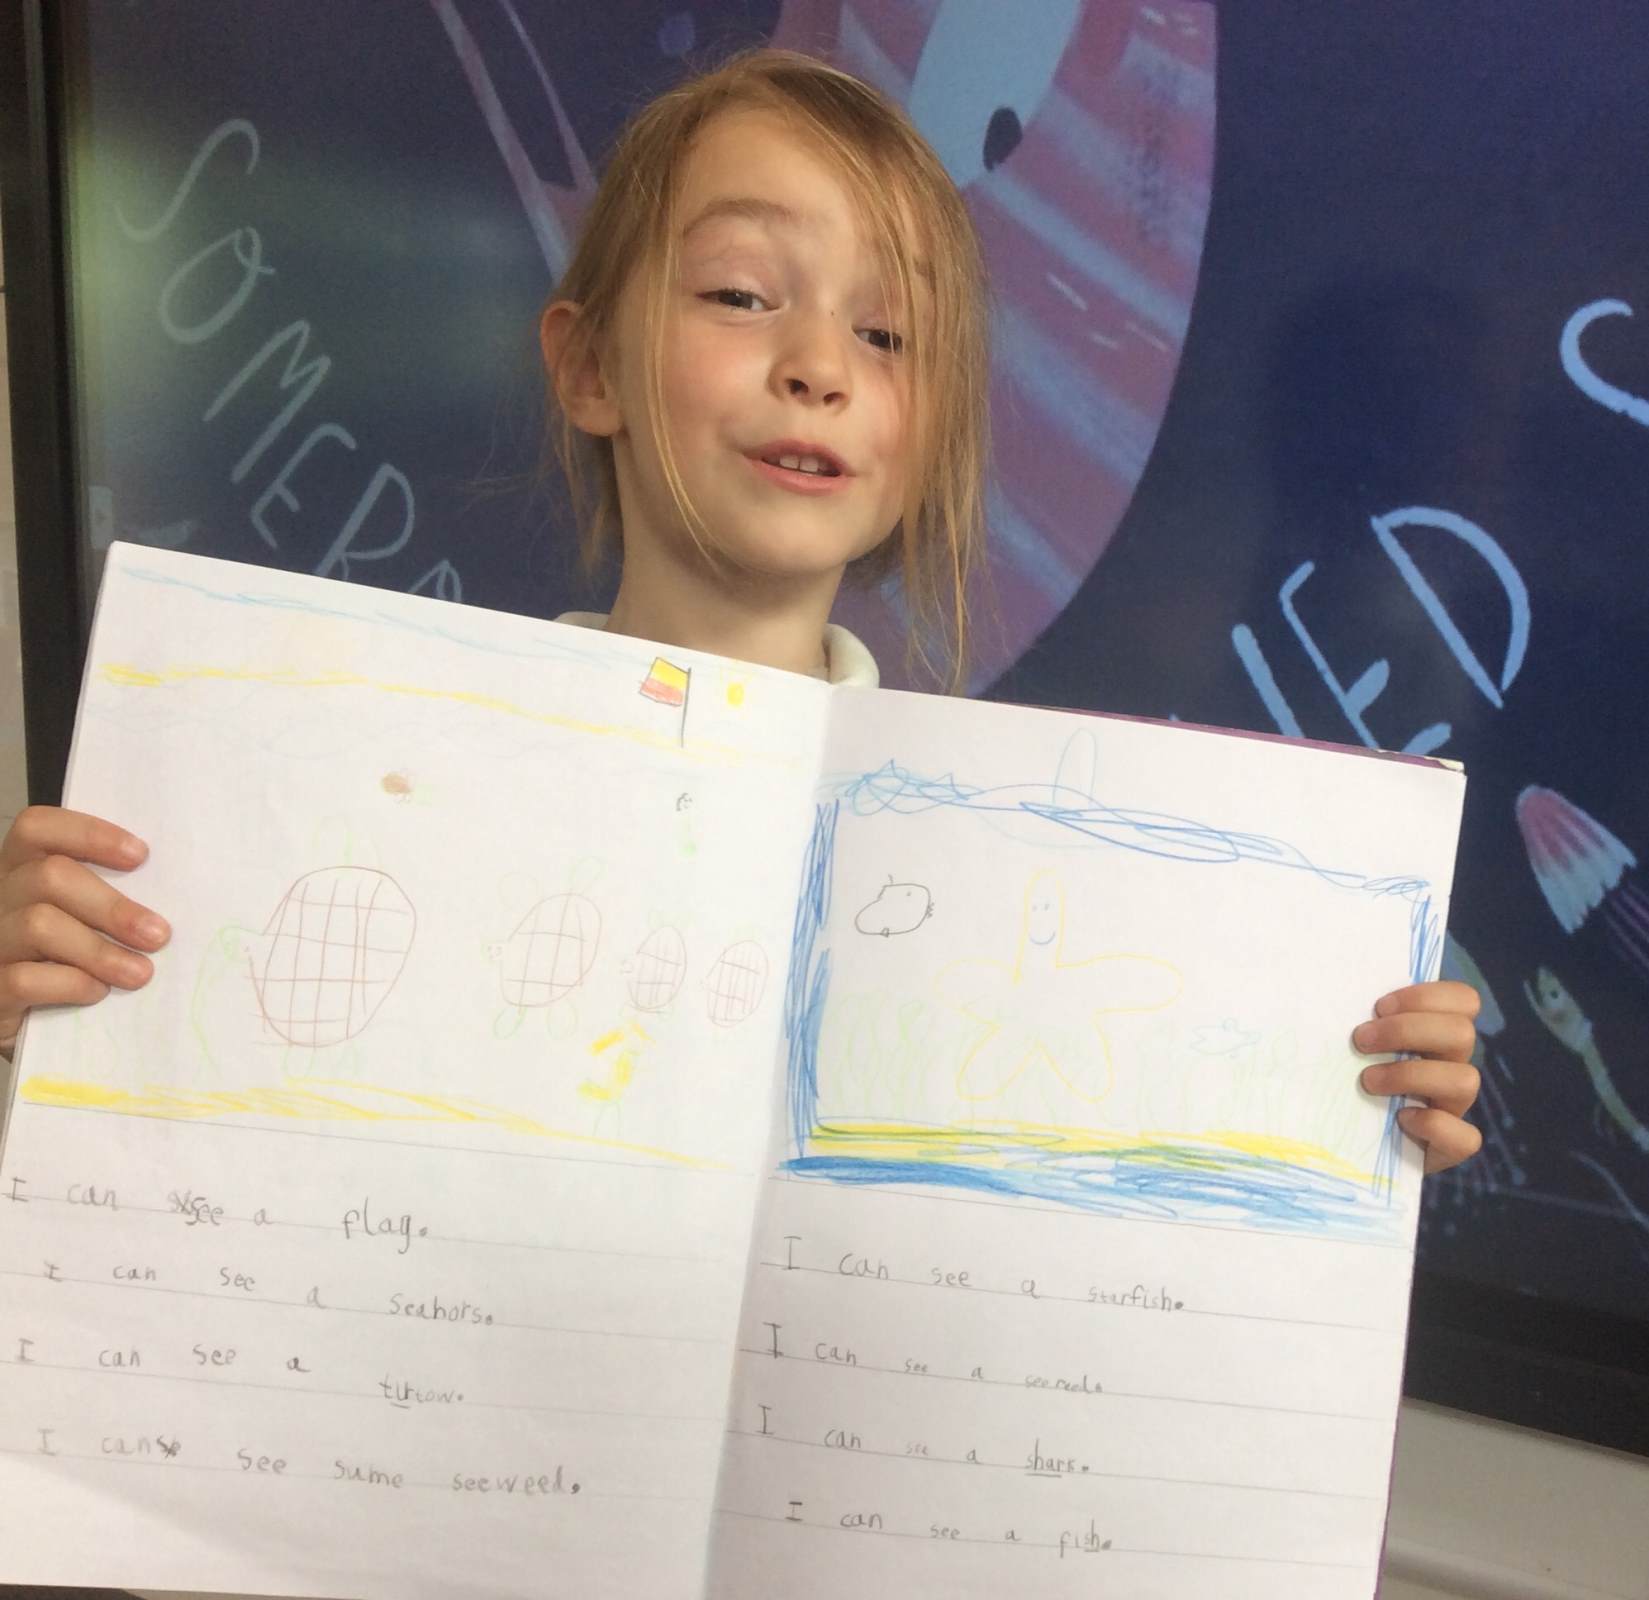 SOMERS
VED
I can see a flag.
I can see a seahors.
I can see a turtow.
I can see sume seeweed.
I can see a starfish.
I can see a
I can see a shark.
I can see a fish.